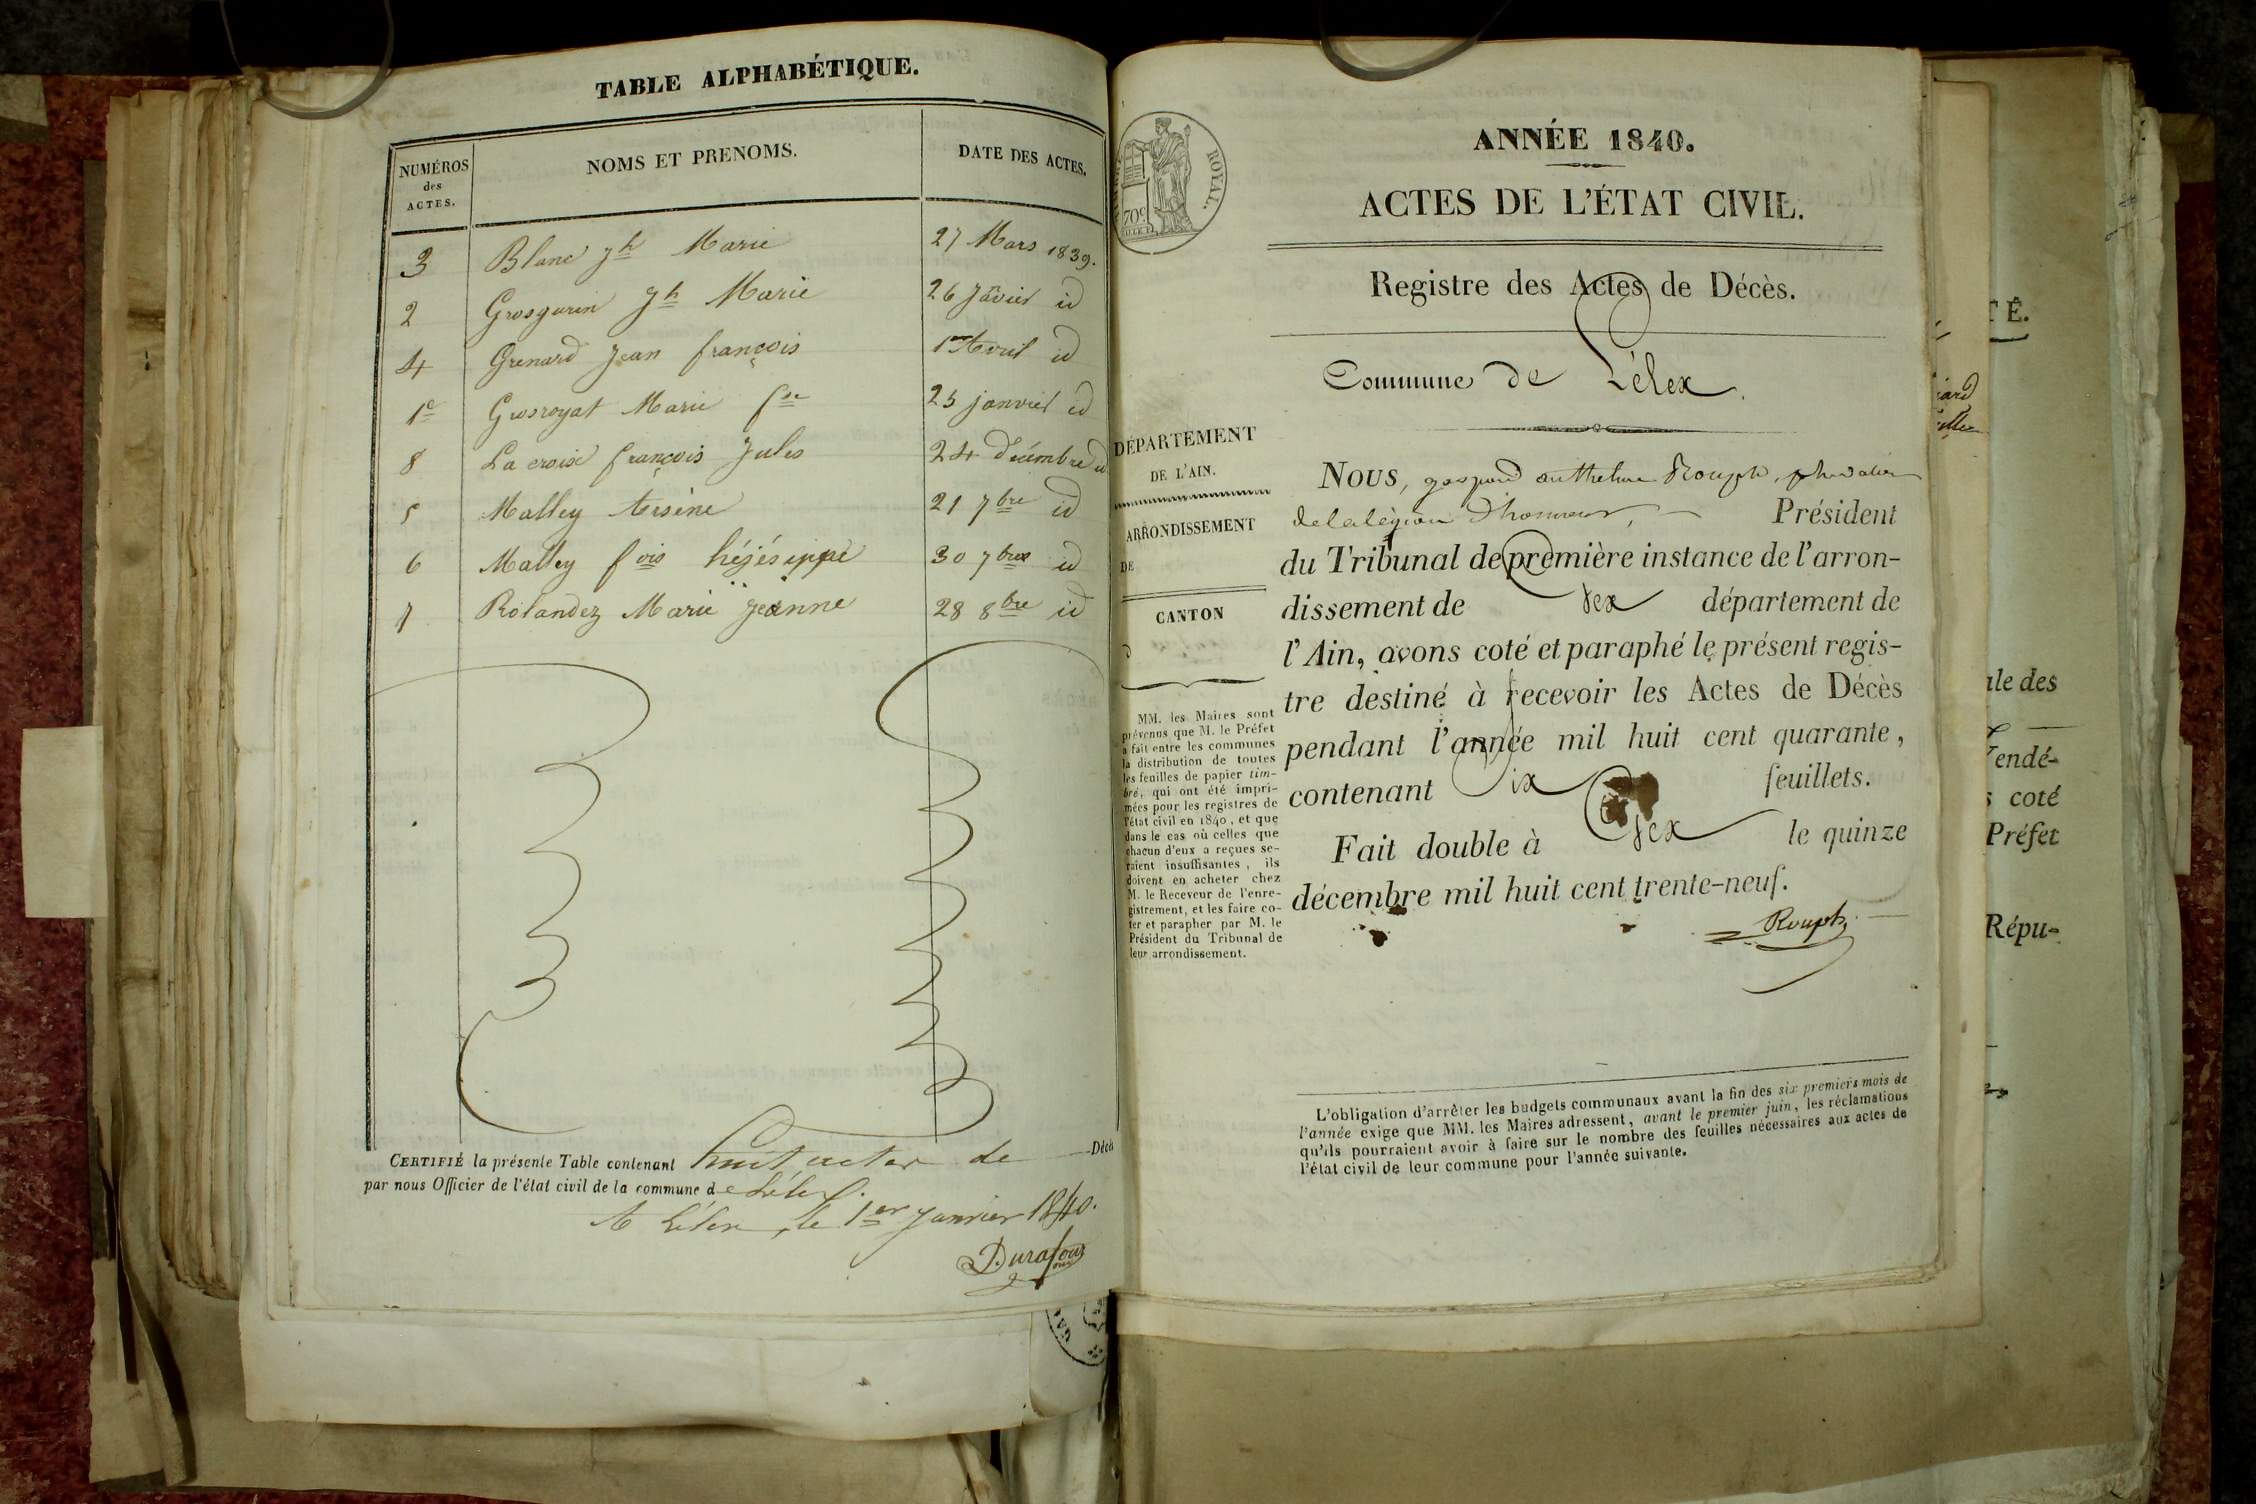 TABLE ALPHABÉTIQUE.
NUMÉROS des ACTES. NOMS ET PRENOMS. DATE DES ACTES.
3 Blanc jh Marie 27 Mars 1839.
2 Grosgurin jh Marie 26 Jävier id
4 Grenard Jean françois 1er Avril id
1e Grosroyat Marie fse 25 janvier id
8 La croix françois Jules 24 Décembre id
5 Malley Arsène 21 7bre id
6 Malley fois héjésippe 30 7bre id
7 Rolandez Marie jeanne 28 8bre id
CERTIFIÉ la présente Table contenant huit actes de Décès
par nous Officier de l'état civil de la commune de Lélex.
A Lélex, le 1er Janvier 1840.
Durafour
TIMBRE ROYAL.
70c
ANNÉE 1840.
ACTES DE L'ÉTAT CIVIL.
Registre des Actes de Décès.
Commune de Lélex.
DÉPARTEMENT
DE L'AIN.
ARRONDISSEMENT
DE
CANTON
D
MM. les Maires sont
prévenus que M. le Préfet
a fait entre les communes
la distribution de toutes
les feuilles de papier tim-
bré, qui ont été impri-
mées pour les registres de
l'état civil en 1840, et que
dans le cas où celles que
chacun d'eux a reçues se-
raient insuffisantes, ils
doivent en acheter chez
M. le Receveur de l'enre-
gistrement, et les faire co-
ter et parapher par M. le
Président du Tribunal de
leur arrondissement.
NOUS, gaspard anthelme Rouph, chevalier
de la légion d'honneur, Président
du Tribunal de première instance de l'arron-
dissement de Gex département de
l'Ain, avons coté et paraphé le présent regis-
tre destiné à recevoir les Actes de Décès
pendant l'année mil huit cent quarante,
contenant six feuillets.
Fait double à Gex le quinze
décembre mil huit cent trente-neuf.
Rouph
L'obligation d'arrêter les budgets communaux avant la fin des six premiers mois de
l'année exige que MM. les Maires adressent, avant le premier juin, les réclamations
qu'ils pourraient avoir à faire sur le nombre des feuilles nécessaires aux actes de
l'état civil de leur commune pour l'année suivante.
TÉ.
ale des
Vendé-
s coté
Préfet
Répu-